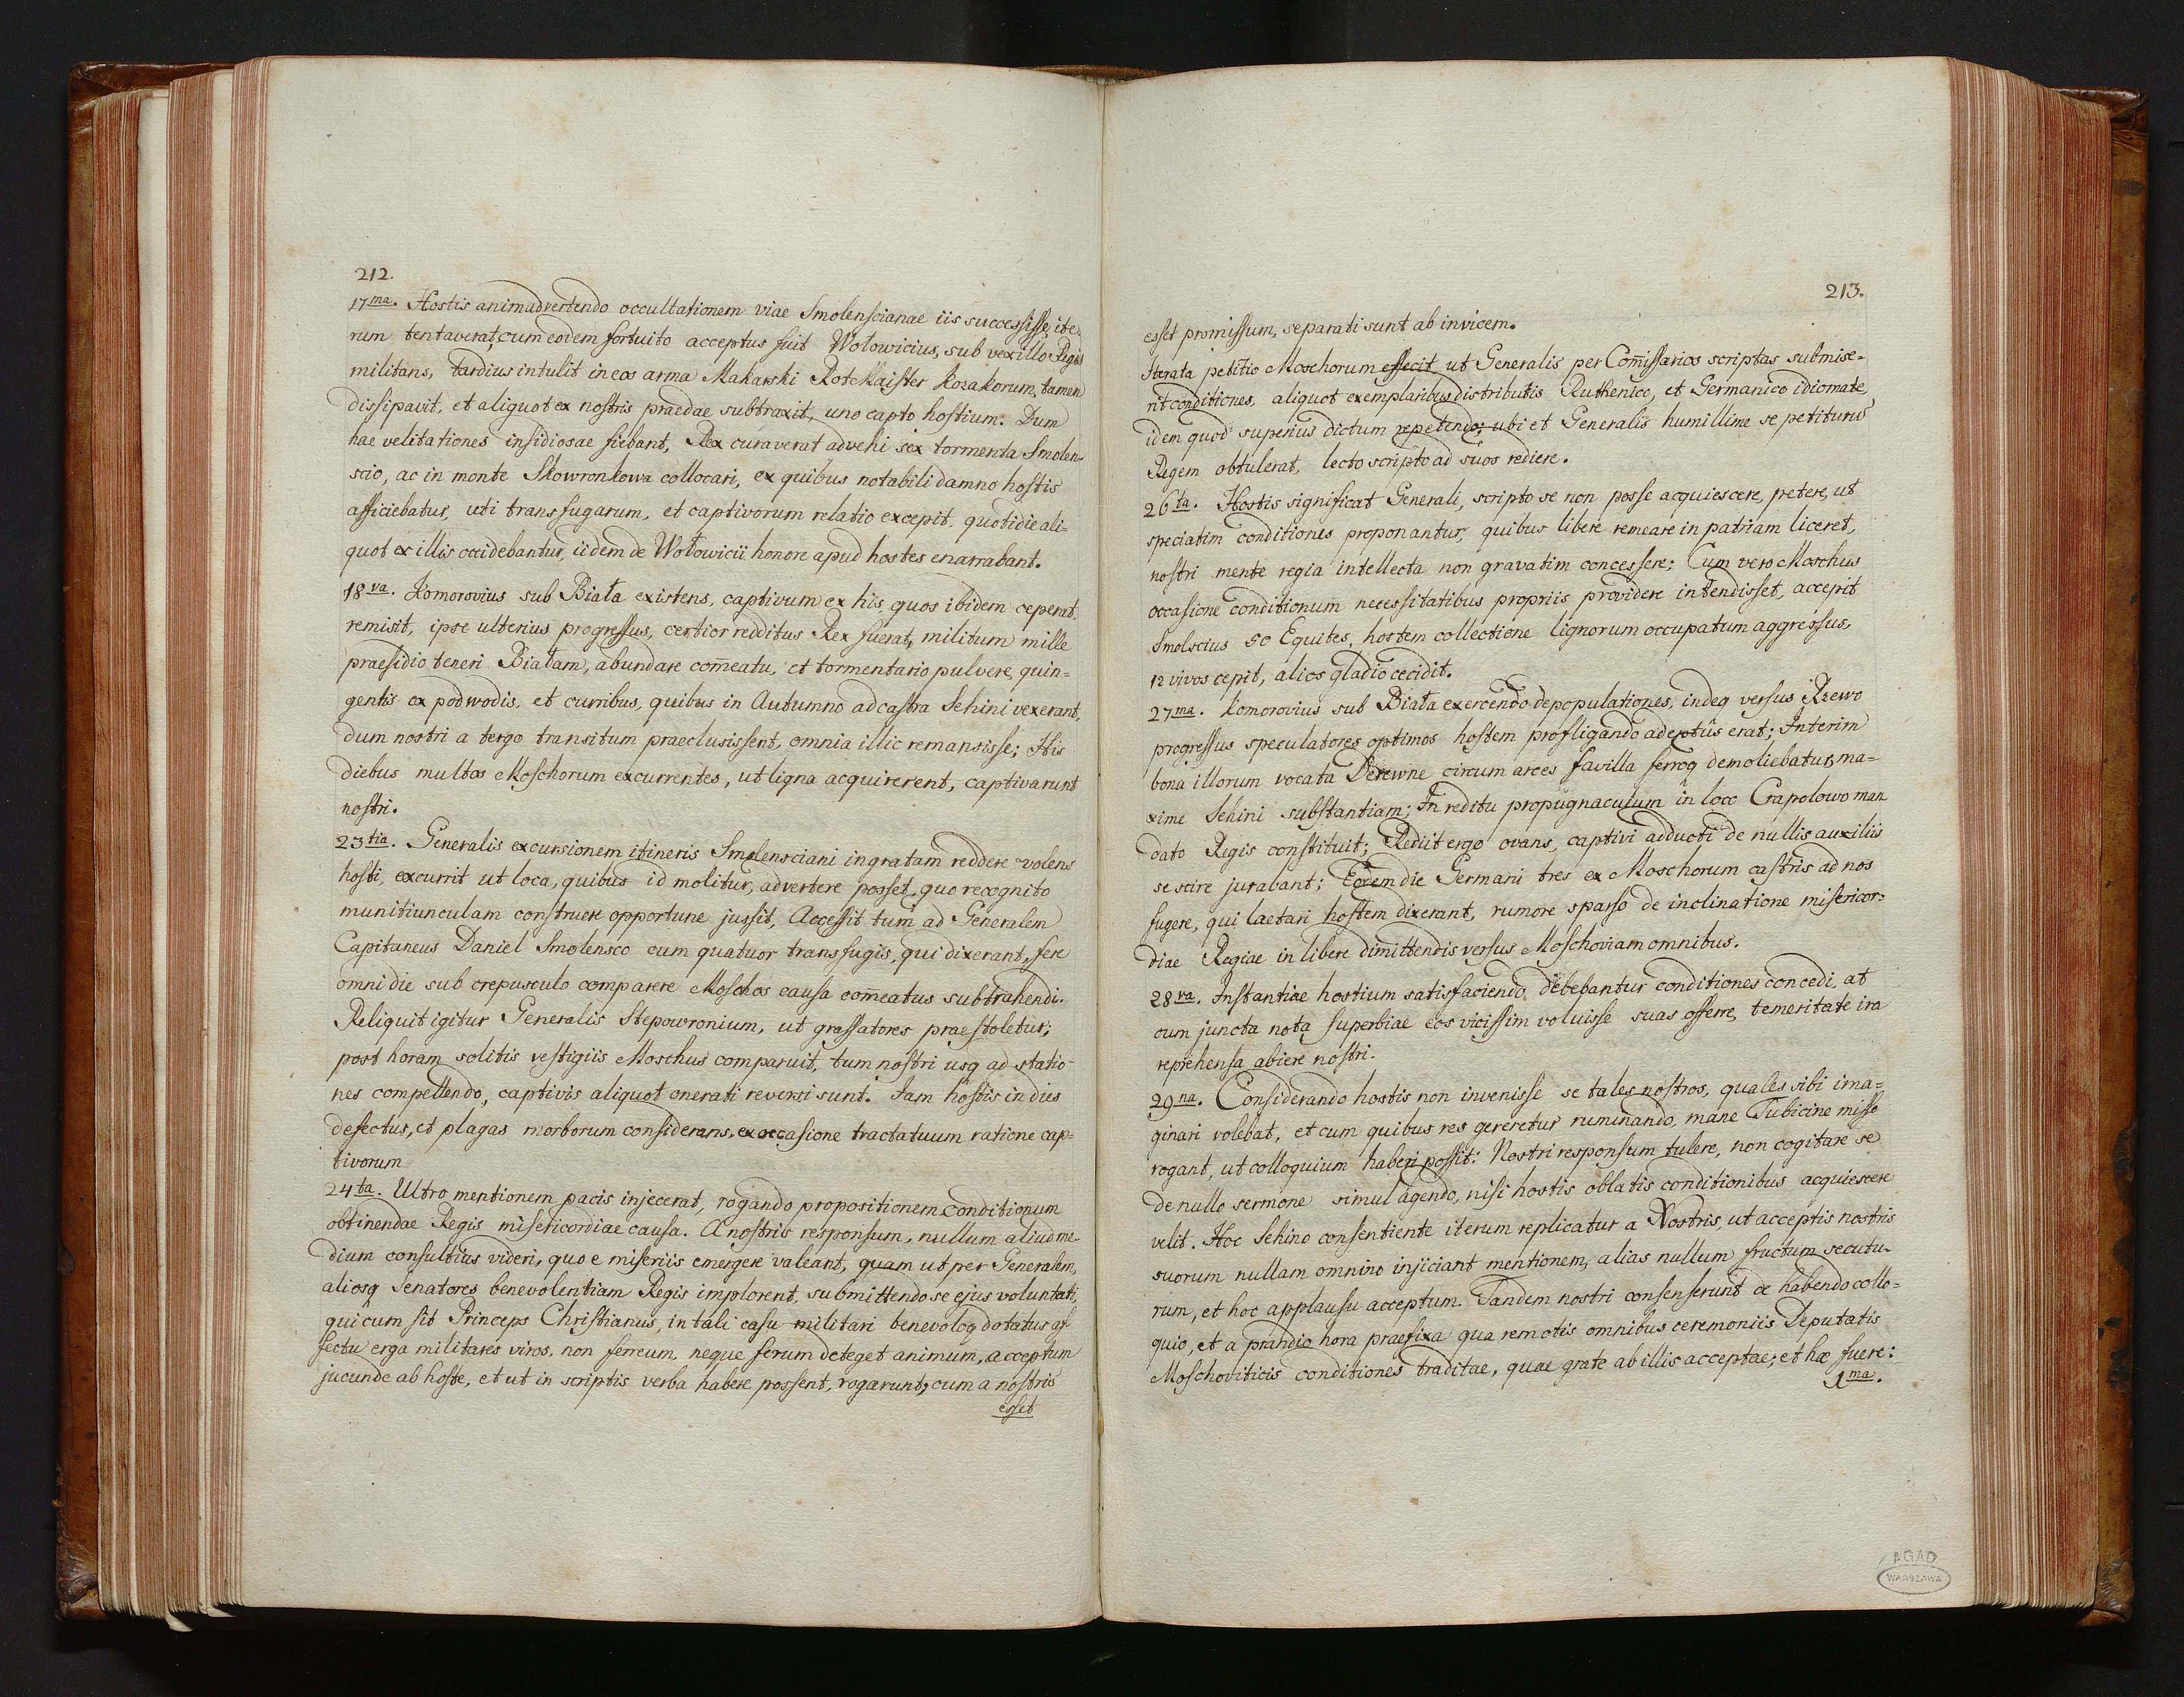 212.
17ma. Hostis animadvertendo occultationem viae Smolenscianae iis successisse, ite=
rum tentaverat, cum eodem fortuito acceptus fuit Wolowicius, sub vexillo Regis
militans, tardius intulit in eos arma Makarski RotMaister Kozakorum, tamen
dissipavit, et aliquot ex nostris praedae subtraxit, uno capto hostium. Dum
hae velitationes insidiosae fiebant, Rex curaverat advehi sex tormenta Smolen=
scio, ac in monte Skowronkowa collocari, ex quibus notabili damno hostis
afficiebatur, uti transfugarum, et captivorum relatio excepit, quotidie ali=
quot ex illis occidebantur, iidem de Wołowicii honore apud hostes enarrabant.
18va. Komorovius sub Biała existens, captivum ex his, quos ibidem ceperat,
remisit, ipse ulterius progressus, certior redditus Rex fuerat, militum mille
praesidio teneri Białam, abundare com̄eatu, et tormentario pulvere, quin=
gentis ex podwodis, et curribus, quibus in Autumno ad castra Sehini vexerant,
dum nostri a tergo transitum praeclusissent, omnia illic remansisse; His
diebus multos Moschorum excurrentes, ut ligna acquirerent, captivarunt
nostri.
23tia. Generalis excursionem itineris Smolensciani ingratam reddere volens
hosti, excurrit ut loca, quibus id molitur, advertere posset, quo recognito
munitiunculam construere opportune jussit, Accessit tum ad Generalem
Capitaneus Daniel Smolensco cum quatuor transfugis, qui dixerant, fere
omni die sub crepusculo comparere Moschos causa com̄eatus subtrahendi.
Reliquit igitur Generalis Stepowronium, ut grassatores praestoletur;
post horam solitis vestigiis Moschus comparuit, tum nostri usq ad statio=
nes compellendo, captivis aliquot onerati reversi sunt. Iam hostis in dies
defectus, et plagas morborum considerans, ex occasione tractatuum ratione cap=
tivorum
24ta. Ultro mentionem pacis injecerat, rogando propositionem conditionum
obtinendae Regis misericordiae causa. A nostris responsum, nullum aliud me=
dium consultius videri, quo e miseriis emergere valeant, quam ut per Generalem,
aliosq Senatores benevolentiam Regis implorent, submittendo se ejus voluntati,
qui cum sit Princeps Christianus, in tali casu militari benevoloq dotatus af=
fectu erga militares viros, non ferreum, neque ferum deteget animum, acceptum
jucunde ab hoste, et ut in scriptis verba habere possent, rogarunt, cum a nostris
esset
213.
esset promissum, separati sunt ab invicem.
Iterata petitio Moschorum effecit ut Generalis per Com̄issarios scriptas submise=
rit conditiones, aliquot exemplaribus distributis Ruthenico, et Germanico idiomate,
idem quod superius dictum repetendo; ubi et Generalis humillime se petiturū
Regem obtulerat, lecto scripto ad suos rediere.
26ta. Hostis significat Generali, scripto se non posse acquiescere, petere, ut
speciatim conditiones proponantur, quibus libere remeare in patriam liceret,
nostri mente regia intellecta non gravatim concessere; Cum vero Moschus
occasione conditionum necessitatibus propriis providere intendisset, accepit
Smolscius 50 Equites, hostem collectione lignorum occupatum aggressus,
12 vivos cepit, alios gladio cecidit.
27ma. Komorovius sub Biała exercendo depopulationes, indeq versus Rzewo
progressus speculatores optimos hostem profligando adeptus erat; Interim
bona illorum vocata Derewne circum arces favilla ferroq demoliebatur, ma=
xime Sehini substantiam; In reditu propugnaculum in loco Czapolowo man
dato Regis constituit; Rediit ergo ovans, captivi adducti de nullis auxiliis
se scire jurabant; Eodem die Germani tres ex Moschorum castris ad nos
fugere, qui laetari hostem dixerant, rumore sparso de inclinatione misericor=
diae Regiae in libere dimittendis versus Moschoviam omnibus.
28va. Instantiae hostium satisfaciendo, debebantur conditiones concedi, at
cum juncta nota superbiae eos vicissim voluisse suas offerre, temeritate ira
reprehensa abiere nostri.
29na. Considerando hostis non invenisse se tales nostros, quales sibi ima=
ginari volebat, et cum quibus res gereretur ruminando, mane Tubicine misso
rogant, ut colloquium haberi possit; Nostri responsum tulere, non cogitare se
de nullo sermone simul agendo, nisi hostis oblatis conditionibus acquiescere
velit. Hoc Sehino consentiente iterum replicatur a Nostris, ut acceptis nostris
suorum nullam omnino injiciant mentionem, alias nullum fructum secutu=
rum, et hoc applausu acceptum. Tandem nostri consenserunt de habendo collo=
quio, et a prandio hora praefixa qua remotis omnibus ceremoniis Deputatis
Moschoviticis conditiones traditae, quae grate ab illis acceptae; et hae fuere:
1ma.
AGAD
WARSZAWA